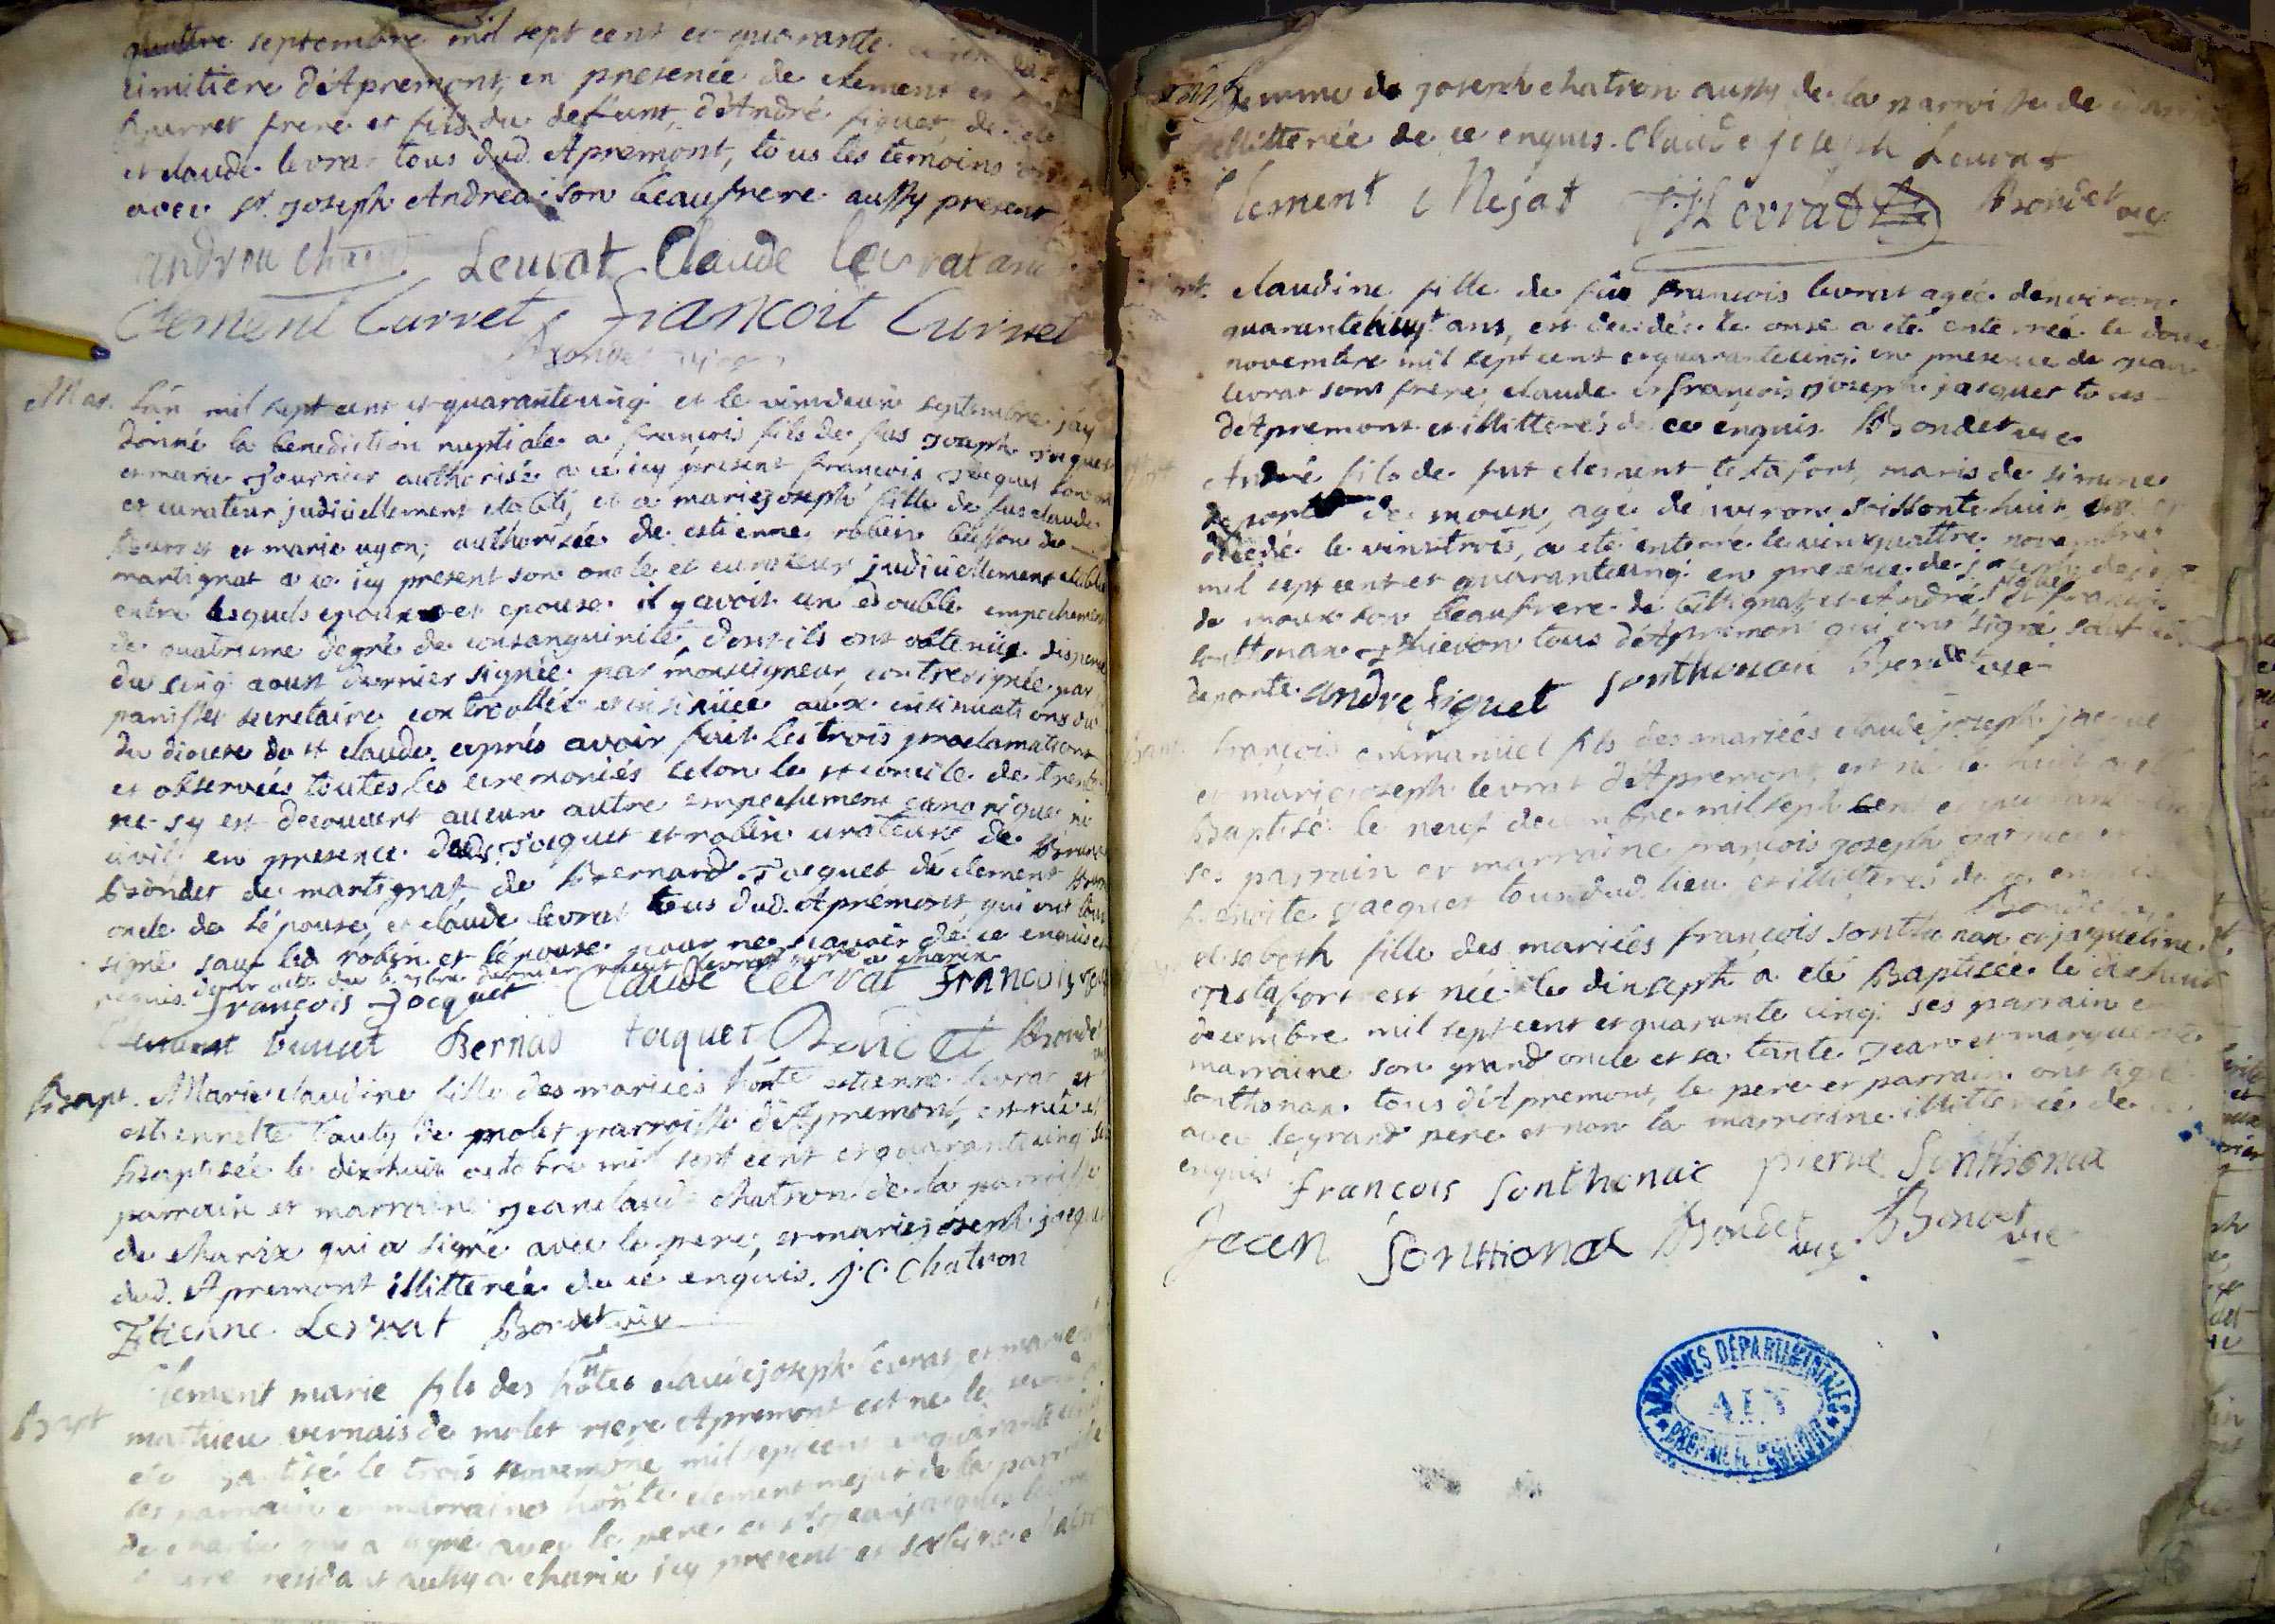 quattre septembre mil sept cent et quarante
cimitiere d'Apremont, en presence de clement et
Burret frere et fils du defunt, d'André figuet, de
et claude levrat tous dud. Apremont, tous les temoins
avec sr. joseph Andrea son beaufrere aussy present
andrea Levrat Claude Levrat
Clement Curret francoit Curret
Bondet
Mar. L'an mil sept cent et quarantecinq et le septembre j'ay
donné la benediction nuptiale a françois fils de fus joseph jaquet
et marie fournier authorisé a ce icy present françois jacquet son
et curateur judiciellement etabli, et a mariejoseph fille de fus claude
Burret et marie ugon, authorisée de estienne robin de
martignat a ce icy present son oncle et curateur judiciellement etabli
entre lesquels epoux et epouse il y avoit un double empechement
de quatrieme degré de consanguinité, dont ils ont obtenüe dispense
du cinq aoust dernier signée par monseigneur, contresignée par
secretaire controllée et insinüée aux insinuations du
du diocese de st claude, apprés avoir fait les trois proclamations
et observées toutes les ceremoniés selon le st concile de trente
ne s'y est decouvert aucun autre empechement canonique ni
civil en presence desd. jacquet et robin curateurs, de
Bondet de martignat, de Bernard jacquet de clement
oncle de l'épouse, et claude levrat tous dud. Apremont, qui ont
signé sauf led robin et l'épouse pour ne scavoir de ce enquis et
requis.
françois Jacquet Claude Levrat François
Clement Burret Bernad Jaquet Bondet
Bapt. Marie claudine fille des mariées honte estienne levrat et
estiennette de molet parroisse d'Apremont, est née et
Baptisée le dixhuit octobre mil sept cent et quarantecinq
parrain et marraine jeanclaude chatron de la parroisse
de charix qui a signé avec le pere, et mariejoseph
dud. Apremont illitterée de ce enquis. J. C. Chatron
Etienne Levrat Bondet vic
Bapt Clement marie fils des hontes claudejoseph levrat et marie
mathieu vernais de molet riere Apremont est né le
eté baptisé le trois novembre mil sept cent et quarante cinq
ses parrain et marraines honte clement mejat de la parroisse
de charix qui a signé avec le pere
residant aussy a charix icy present et
femme de joseph chatron aussy de la parroisse de
illitterée de ce enquis. Claude joseph Levrat
Clement Mejat Levrat Bondet vic
claudine fille de füe françois levrat agée d'environ
quarantehuyt ans, est decedée le onse a eté enterrée le douse
novembre mil sept cent et quarantecinq en presence de jean
levrat sont frere, claude et françois joseph jacquet tous
d'Apremont et illitterés de ce enquis Bondet vic
André fils de fut clement testafort, maris de simone
deporte de moux, agé d'environ soissante huit ans
decedé le vinttrois, a eté enterré le vintquattre novembre
mil sept cent et quarantecinq en presence de joseph
de moux son beaufrere de Bellignat, et André figuet et francois
sontthonax tous d'Apremont qui ont signé sauf led.
deporte. andre figuet sonthonax Bondet vic
françois emmanüel fils des mariées claude joseph jacquet
et mariejoseph levrat d'Apremont, est né le huit a eté
Baptisé le neuf decembre mil sept cent et quarante cinq
ses parrain et marraine françois joseph jacquet et
Benoite jacquet tous dud. lieu et illitterés de ce enquis
Bondet
elisabeth fille des mariées françois sonthonax et jacqueline
Testafort est née le dixsept, a eté Baptisée le dixhuit
decembre mil sept cent et quarante cinq. ses parrain et
marraine son grand oncle et sa tante jean et marguerite
sonthonax tous d'Apremont, le pere et parrain ont signé
avec le grand pere et non la marraine illitterée de ce
enquis
françois Sonthonax pierre Sonthonax
Jean Sontthonax Bondet vic Bondet vic
ARCHIVES DÉPARTEMENTALES
AIN
PROPRIÉTÉ PUBLIQUE